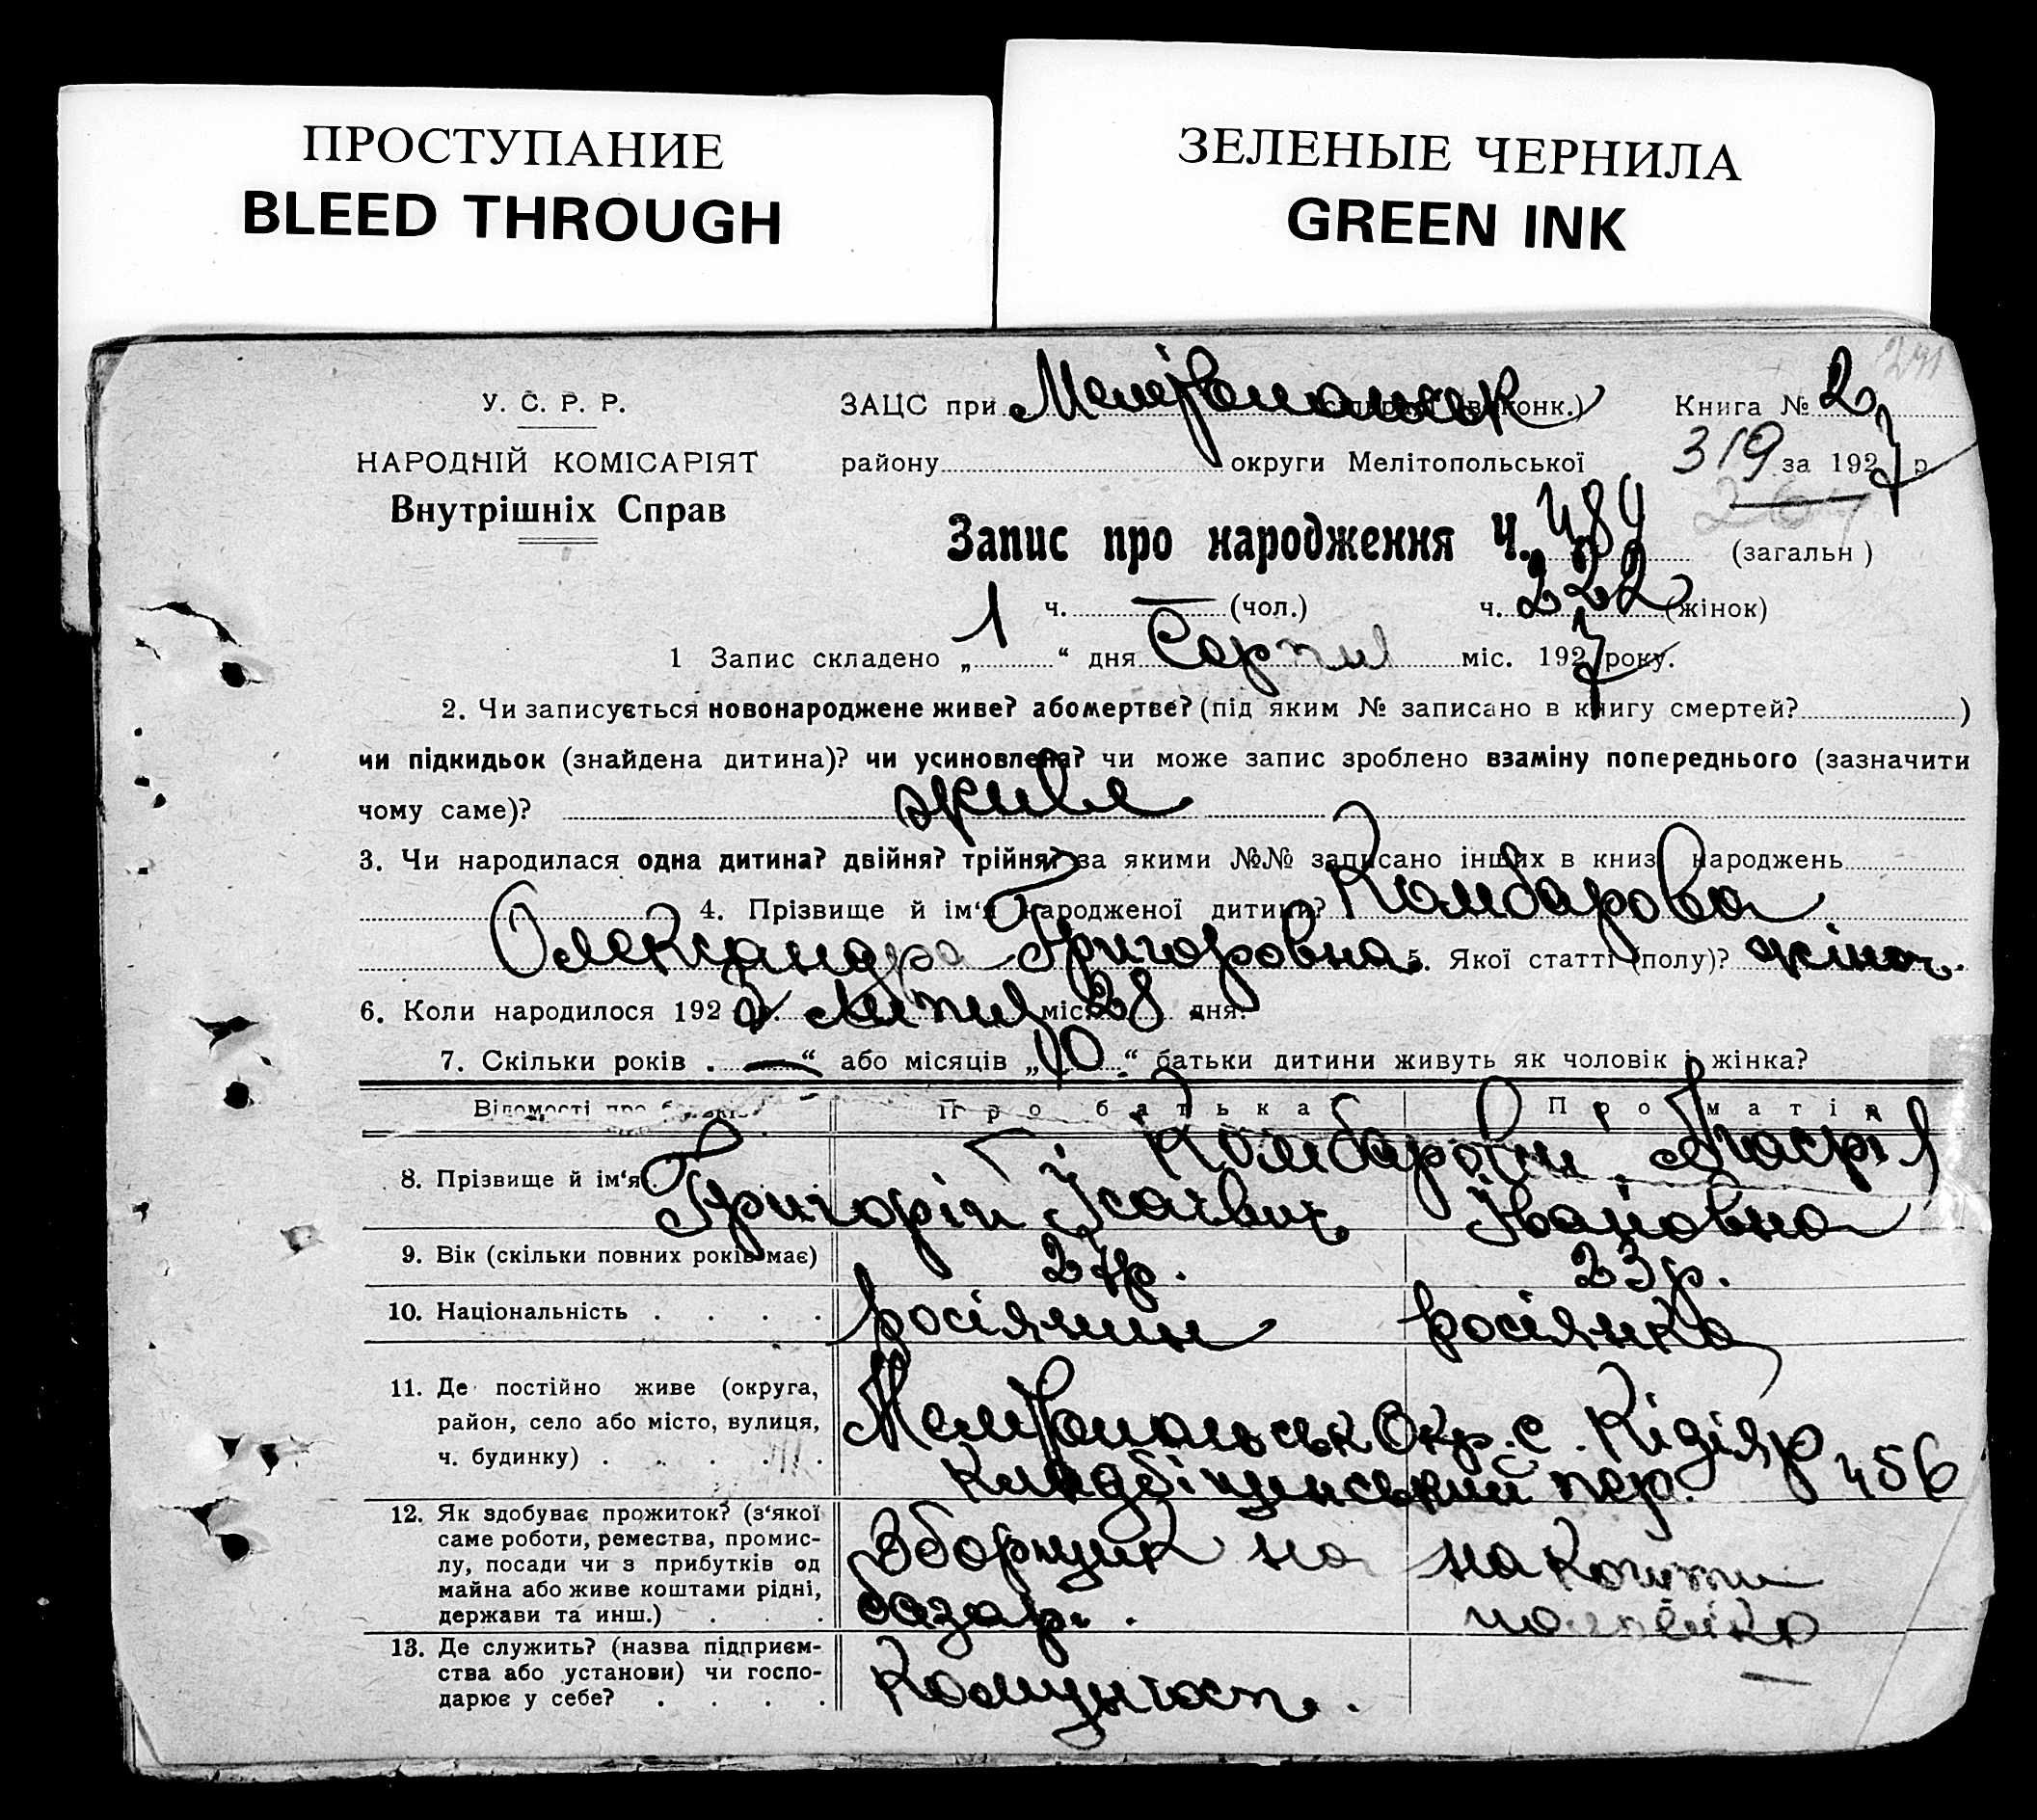 ПРОСТУПАНИЕ
BLEED THROUGH
ЗЕЛЕНЫЕ ЧЕРНИЛА
GREEN INK
291
У. С. Р. Р.
НАРОДНІЙ КОМІСАРІЯТ
Внутрішніх Справ
ЗАЦС при (виконк.) Книга № 2
району округи Мелітопольської 319 за 1927 р.
Запис про народження Ч. 484 (загальн )
ч. — (чол.) ч. 222 (жінок)
1 Запис складено „ 1 “ дня Серпня міс. 1927 року.
2. Чи записується новонароджене живе? або мертве? (під яким № записано в книгу смертей? )
чи підкидьок (знайдена дитина)? чи усиновлена? чи може запис зроблено взаміну попереднього (зазначити
чому саме)? живе
3. Чи народилася одна дитина? двійня? трійня? за якими №№ записано інших в книзі народжень
4. Прізвище й ім‘я народженої дитини? Камбарова
Олександра Григоровна 5. Якої статті (полу)? жіноч.
6. Коли народилося 1927 р. липня міс. 28 дня.
7. Скільки років . — “ або місяців „ 10 “ батьки дитини живуть як чоловік і жінка?
Відомості про батьків Про батька Про матір
8. Прізвище й ім‘я Камбарови
Григорій Ісаєвич Івановна
9. Вік (скільки повних років має) 27р. 23р.
10. Національність . . . . росіянин росіянка
11. Де постійно живе (округа,
район, село або місто, вулиця,
ч. будинку) . . . . .
Мелітопольськ Окр. с. Кізіяр
Кладбіщенський пер. 456
12. Як здобуває прожиток? (з‘якої
саме роботи, ремества, промис-
лу, посади чи з прибутків од
майна або живе коштами рідні,
держави та инш.) . . .
Зборщик на
базарі.
на кошти
чоловіка
13. Де служить? (назва підприєм-
ства або установи) чи госпо-
дарює у себе? . . . .
—